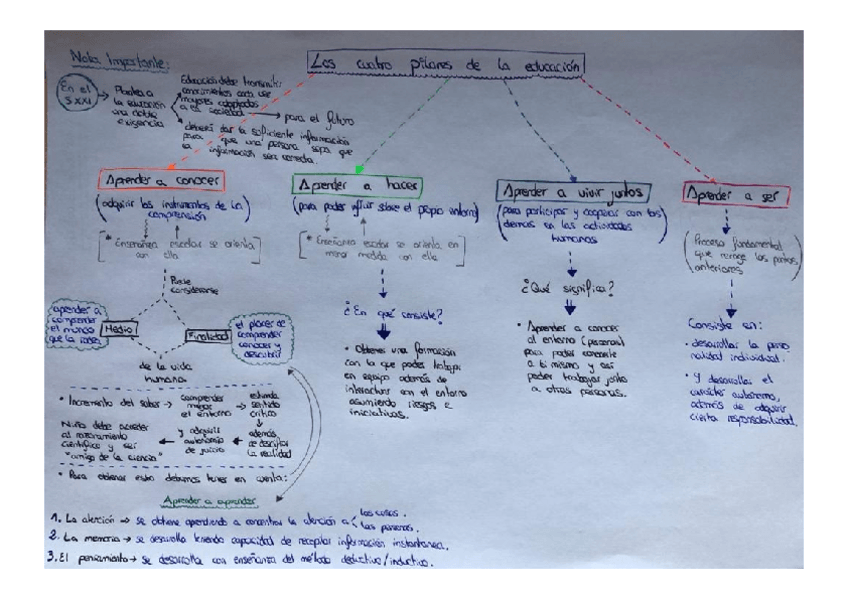 Nota Importante:
Los cuatro pilares de la educación
En el
S.XXI
Plantea a
la educación
una doble
exigencia
Educación debe transmitir
conocimientos cada vez
mayores adaptados
a la sociedad
para el futuro
deberá dar la suficiente información
para que una persona sepa que
la información sea correcta.
Aprender a conocer
(adquirir los instrumentos de la
comprensión)
[* Enseñanza escolar se orienta
con ella]
Puede
considerarse
aprender a
comprender
el mundo
que la rodea
Medio
Finalidad
el placer de
comprender
conocer y
descubrir
de la vida
humana
• Incremento del saber → comprender
mejor
el entorno
→ estimula
sentido
crítico
además
de descifrar
la realidad
y adquirir
autonomía
de juicio
Niño debe acceder
al razonamiento
científico y ser
"amigo de la ciencia"
• Para obtener esto debemos tener en cuenta:
Aprender a aprender
1. La atención → se obtiene aprendiendo a concentrar la atención a las cosas.
las personas.
2. La memoria → se desarrolla teniendo capacidad de receptar información instantánea.
3. El pensamiento → se desarrolla con enseñanza del método deductivo/inductivo.
Aprender a hacer
(para poder influir sobre el propio entorno)
[* Enseñanza escolar se orienta en
menor medida con ella]
¿En qué consiste?
• Obtener una formación
con la que poder trabajar
en equipo además de
interactuar con el entorno
asumiendo riesgos e
iniciativas.
Aprender a vivir juntos
(para participar y cooperar con los
demás en las actividades
humanas)
¿Qué significa?
• Aprender a conocer
al entorno (personas)
para poder conocerte
a ti mismo y así
poder trabajar junto
a otras personas.
Aprender a ser
(Proceso fundamental
que recoge los puntos
anteriores)
Consiste en:
• desarrollar la perso
nalidad individual.
• Y desarrollar el
carácter autónomo,
además de adquirir
cierta responsabilidad.